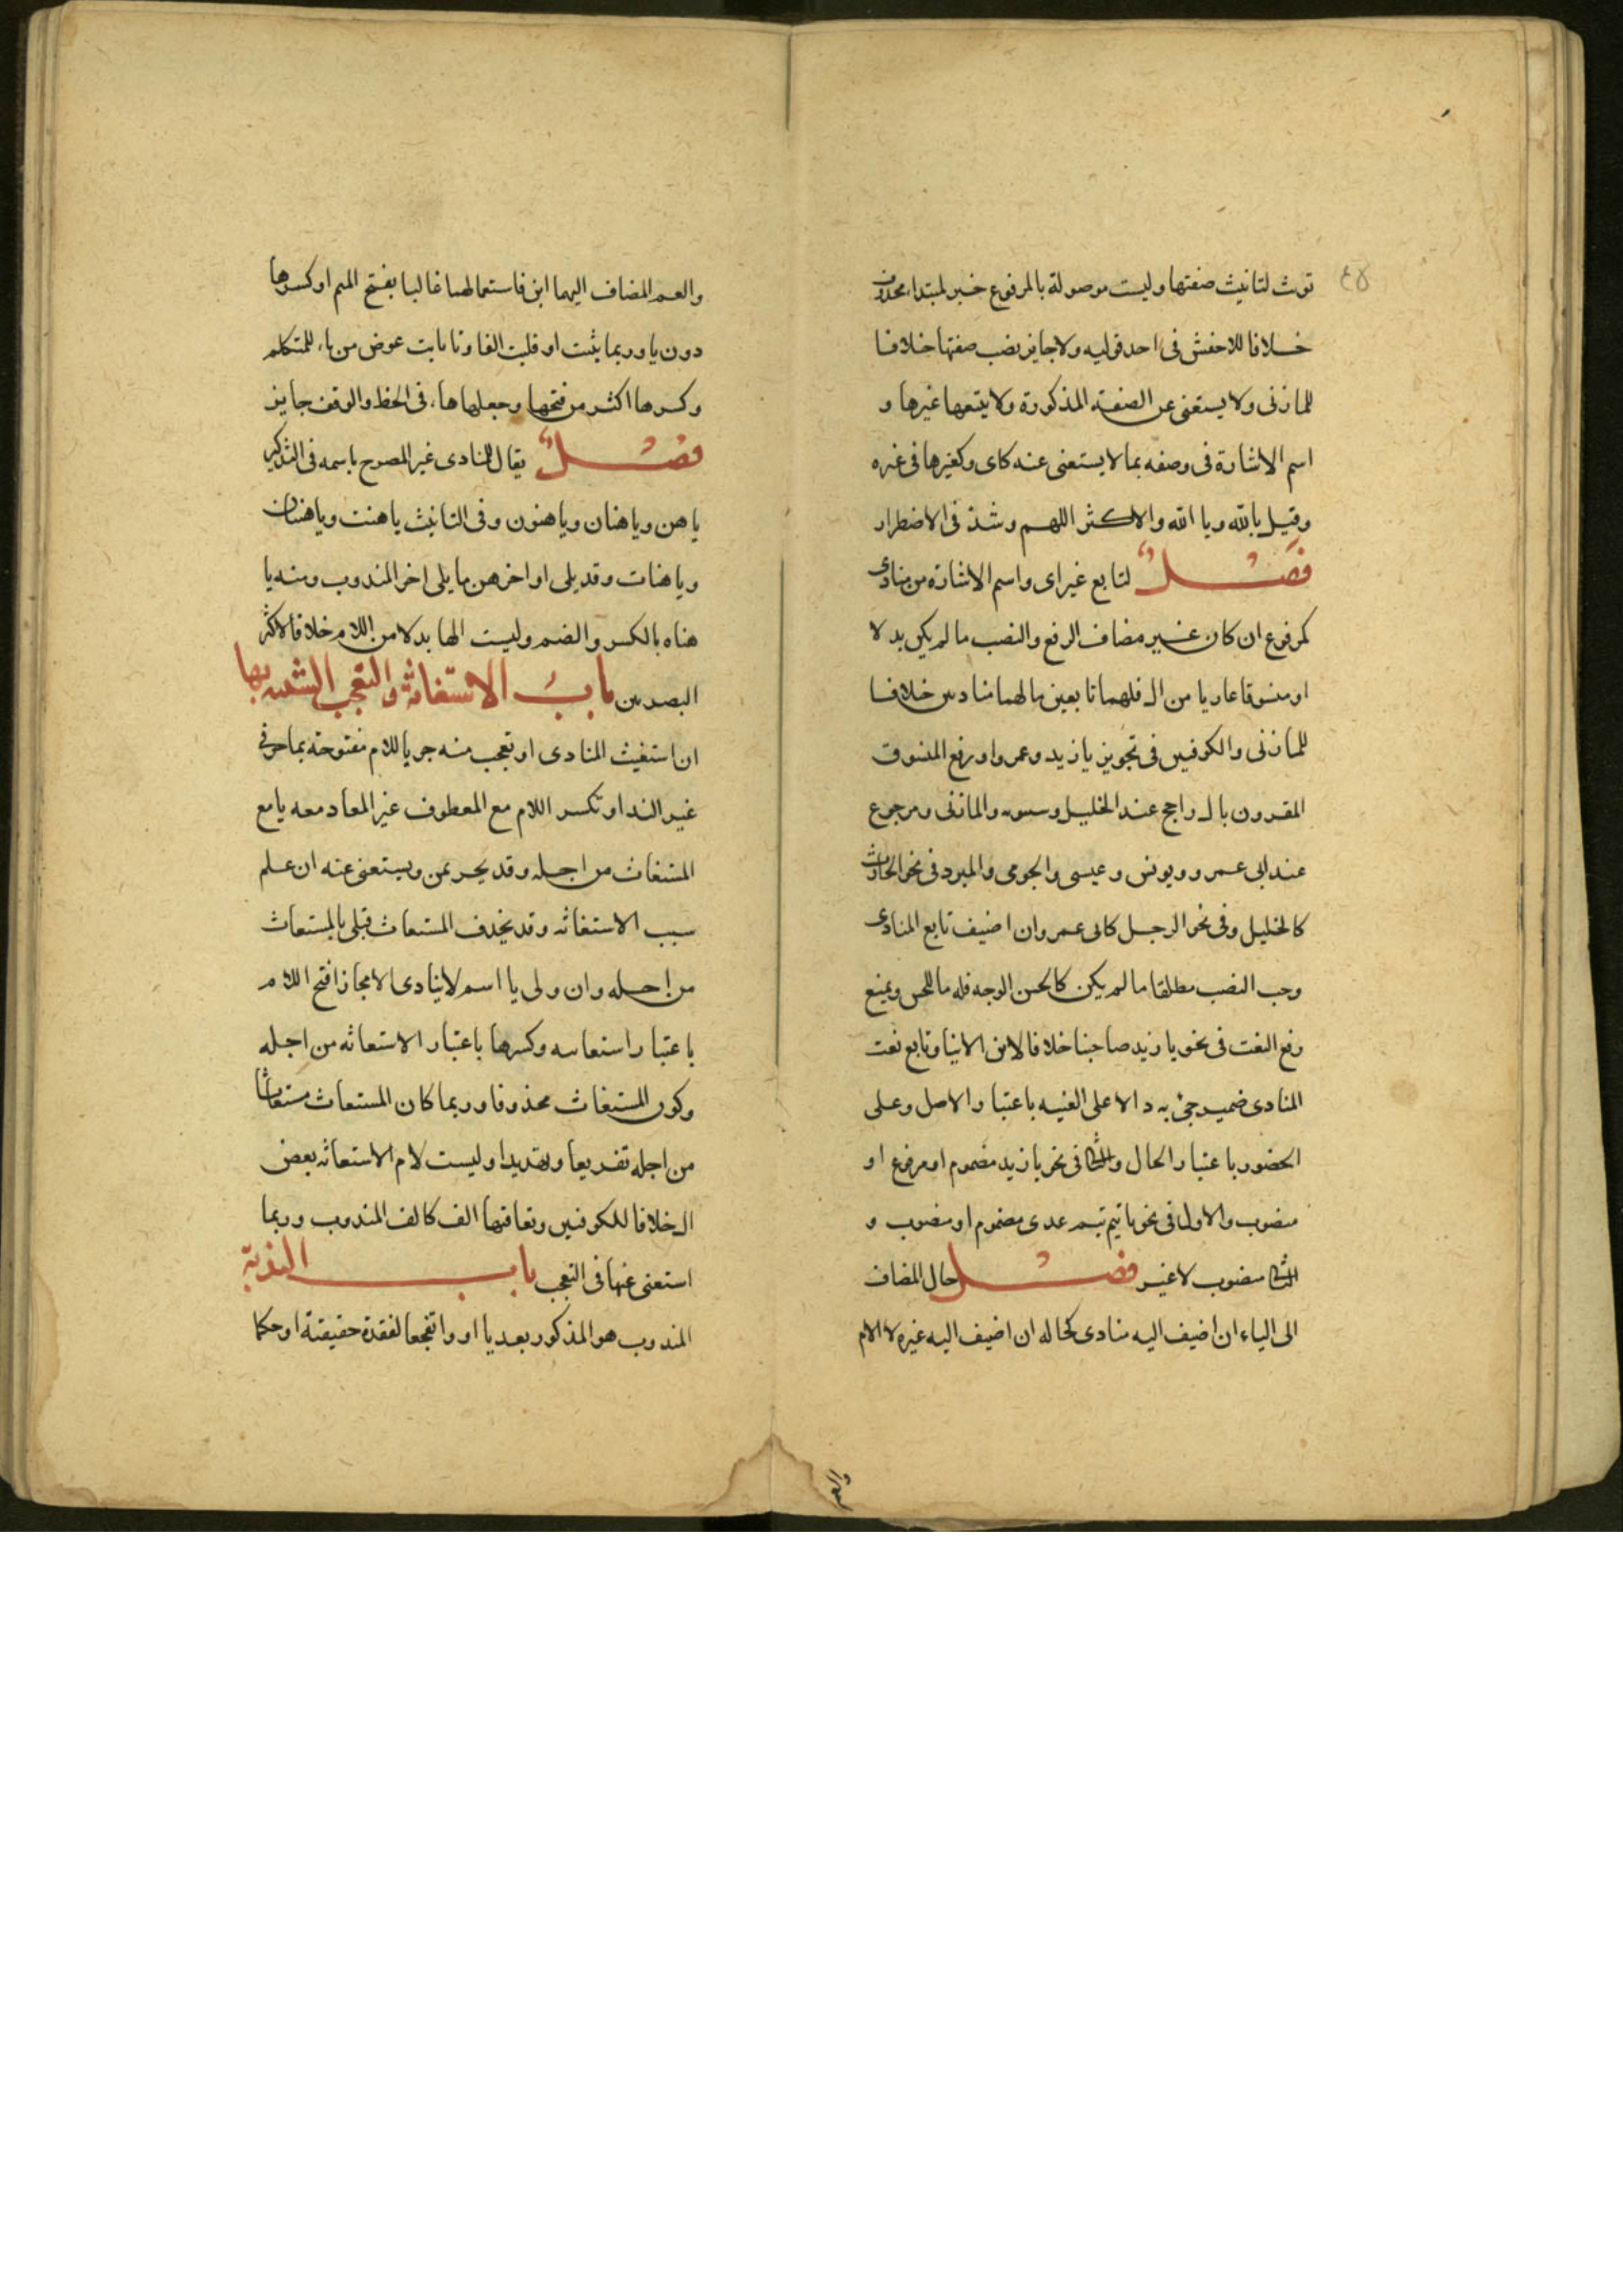 ٤٥
توث لتانيث صفتها وليست موصولة بالمرفوع خبر لمبتداء محذوف
خلافا للاخفش فى احد قوليه ولا جايز نصب صفتها خلافا
للمازنى ولا يستغنى عن الصفة المذكورة ولا يتبعها غيرها و
اسم الاشارة فى وصفه بما لا يستغنى عنه كاى وكغيرها فى غيره
وقيل يالله ويا الله والاكثر اللهم وشذ فى الاضطرار
فصل لتابع غير اى واسم الاشارة من منادى
كمرفوع ان كان غير مضاف الرفع والنصب ما لم يكن بدلا
او منسوقا عاريا من ال فلهما تابعين ما لهما مناديين خلافا
للمازنى والكوفيين فى تجويز يا زيد وعمروا ورفع المنسوق
المقرون بال راجح عند الخليل وسيبويه والمازنى ومرجوع
عند ابى عمرو ويونس وعيسى والجرمى والمبرد فى نحو الحارث
كالخليل وفى نحو الرجل كابى عمرو وان اضيف تابع المنادى
وجب النصب مطلقا ما لم يكن كالحسن الوجه فله ما للحسن ويمنع
رفع النعت فى نحو يا زيد صاحبنا خلافا لابن الانبا وتابع نعت
المنادى ضمير جئ به دالا على الغيبه باعتبار الاصل وعلى
الحضور باعتبار الحال والثانى فى نحو يا زيد مضموم او مرفوع او
منصوب والاول فى نحو يا تيم تيم عدى مضموم او منصوب و
الثانى منصوب لا غير فصل حال المضاف
الى الياء ان اضيف اليه منادى كحاله ان اضيف اليه غيره الا الام
والعم
والعم المضاف اليهما ابن فاستعمالهما غالبا بفتح الميم او كسرها
دون يا وربما ثبت او قلبت الفا وتا يابت عوض من ياء للمتكلم
وكسرها اكثر من فتحها وجعلها هاء فى الخط والوقف جايز
فصل يقال للنادى غير المصرح باسمه فى التذكير
يا هن ويا هنان ويا هنون وفى التانيث يا هنت ويا هنتان
ويا هنات وقد يلى اواخرهن ما يلى اخر المندوب ومنه يا
هناه بالكسر والضم وليست الها بدلا من اللام خلافا لاكثر
البصريين باب الاستغاثة والتعجب الشبيه بها
ان استغيث المنادى او تعجب منه جر باللام مفتوحة بما جر فى
غير الندا وتكسر اللام مع المعطوف غير المعاد معه يا مع
المستغاث من اجله وقد يجر بمن ويستغنى عنه ان علم
سبب الاستغاثه وقد يحذف المستغاث قبلى يالمستغاث
من اجله وان ولى يا اسم لا ينادى الا مجازا فتح اللام
باعتبار استغاثته وكسرها باعتبار الاستغاثه من اجله
وكون المستغاث محذوفا وربما كان المستغاث مستغاثا
من اجله تقريعا وتهديدا وليست لام الاستغاثه بعض
ال خلافا للكوفيين وتعاقبها الف كالف المندوب وربما
استغنى عنها فى التعجب باب الندبة
المندوب هو المذكور بعد يا او وا تفجعا لفقده حقيقة او حكما